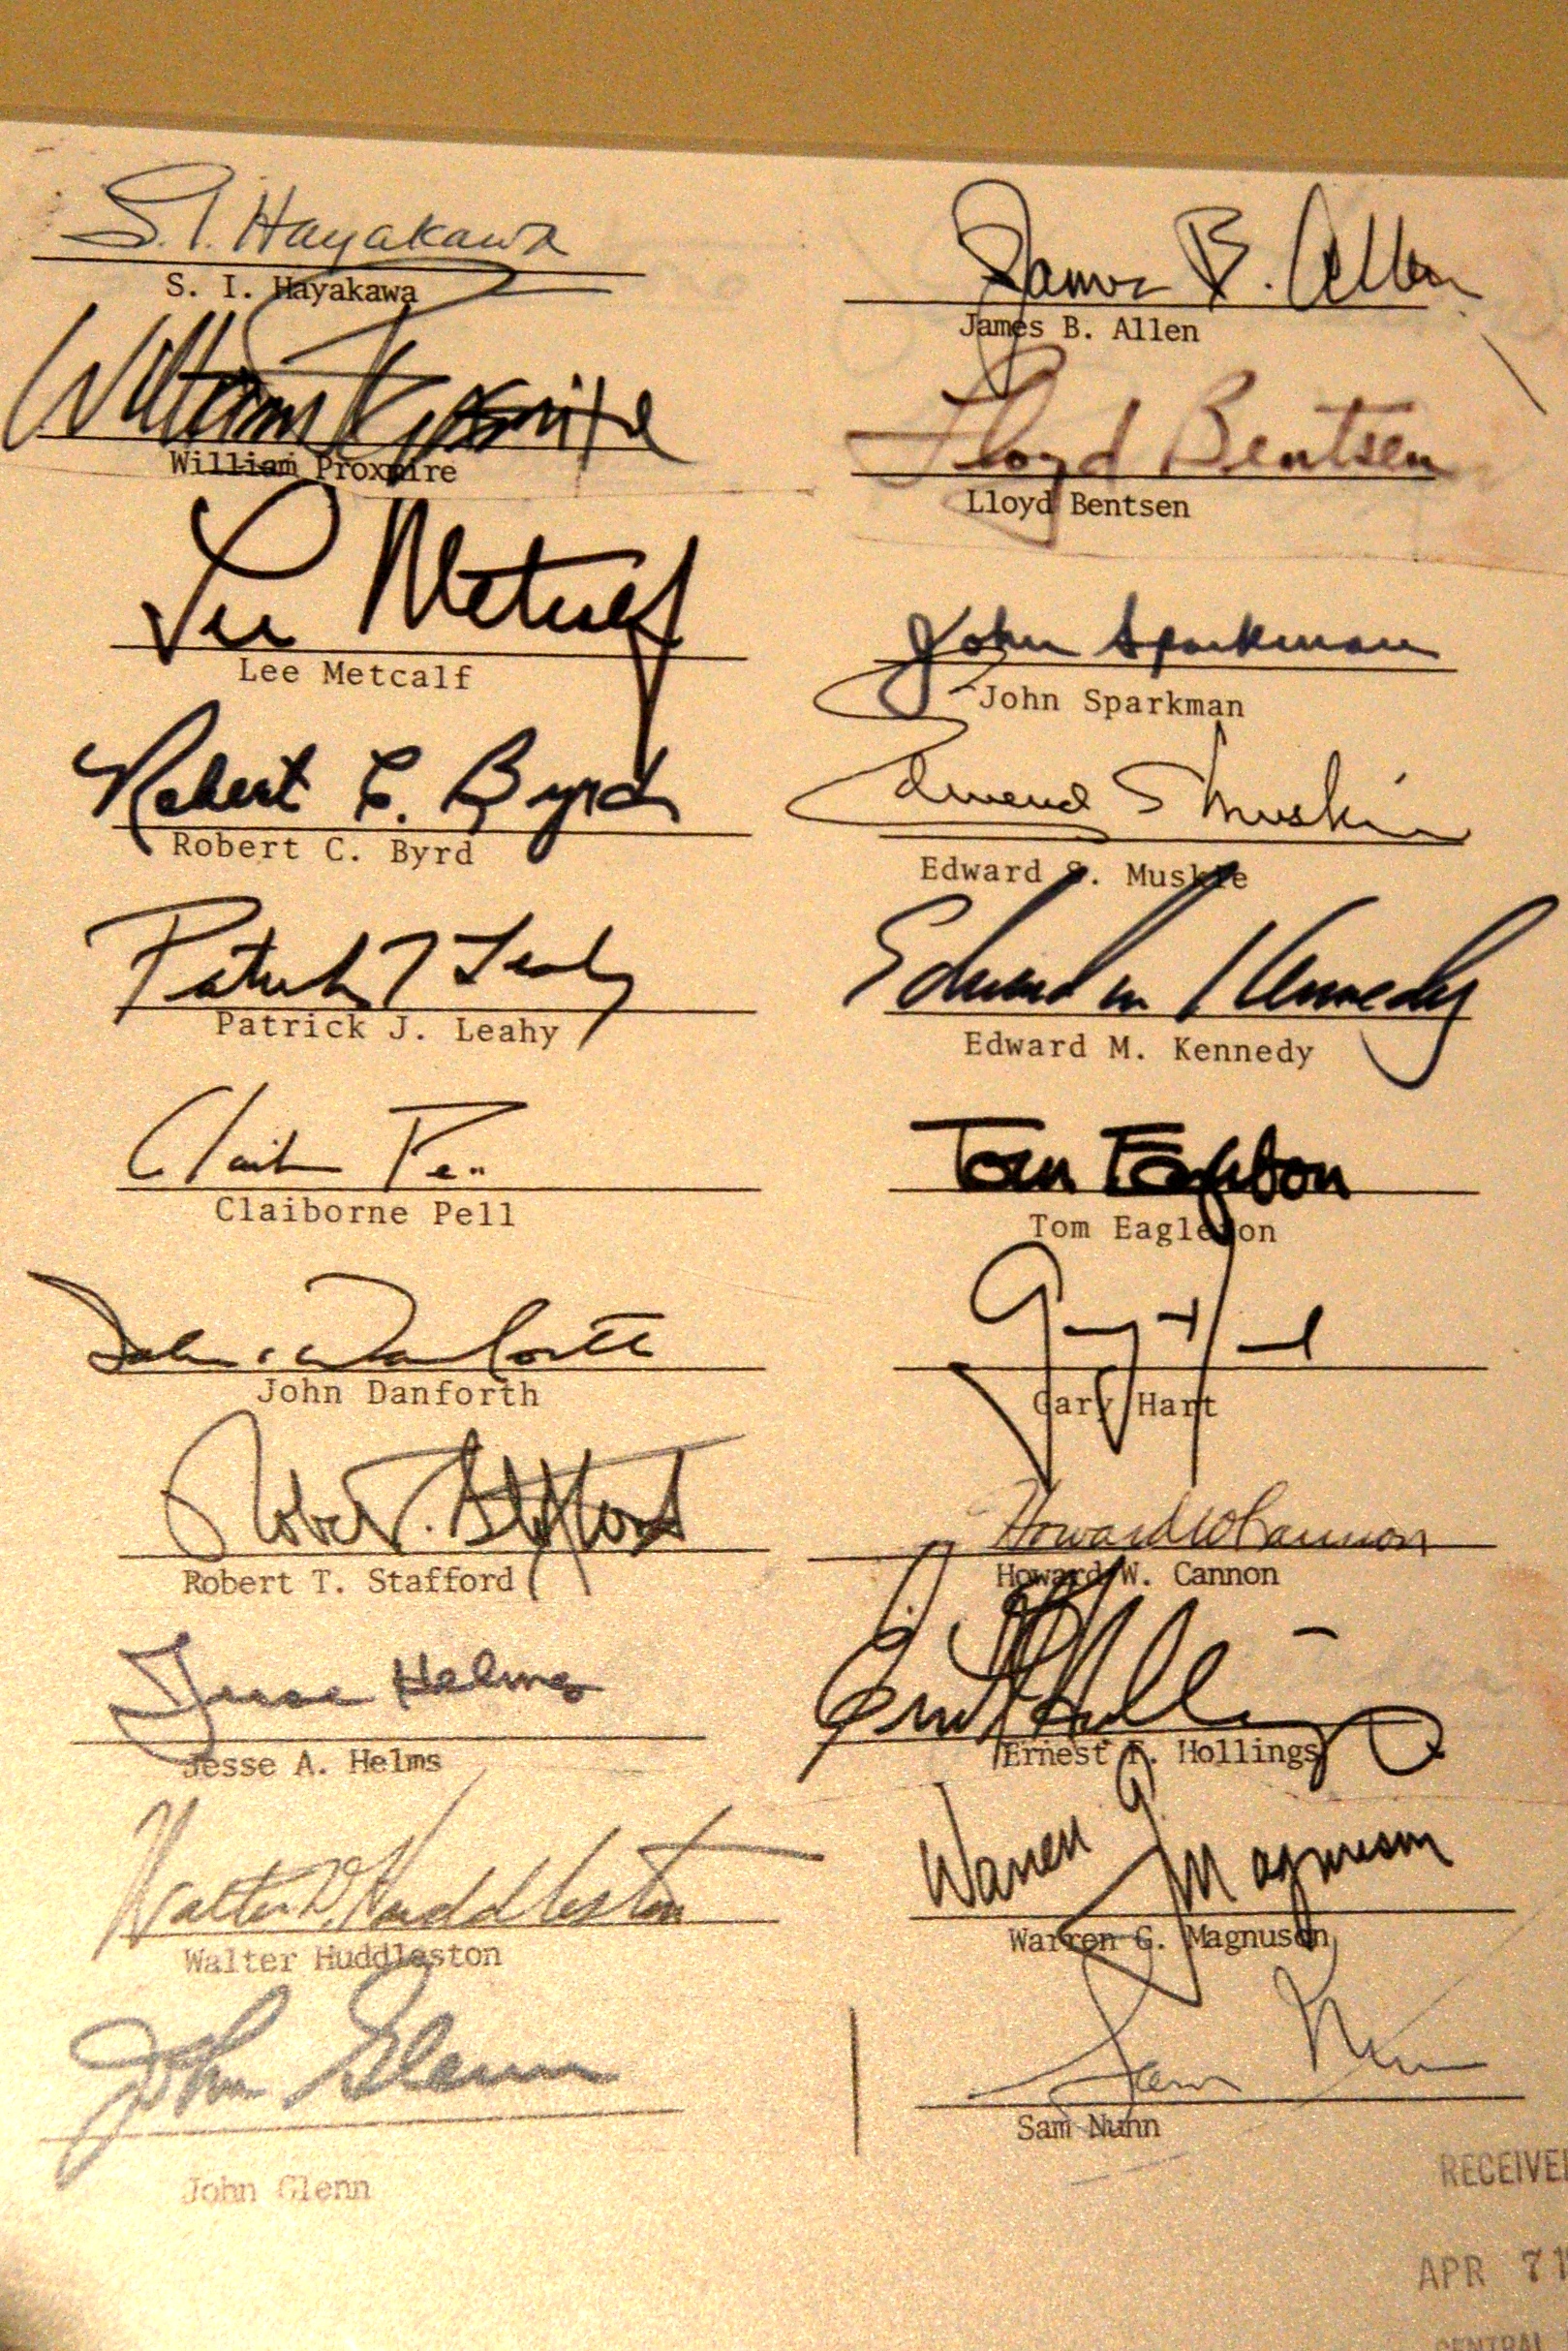 S. I. Hayakawa
S. I. Hayakawa
William Proxmire
William Proxmire
Lee Metcalf
Lee Metcalf
Robert C. Byrd
Robert C. Byrd
Patrick J Leahy
Patrick J. Leahy
Claiborne Pell
Claiborne Pell
John C Danforth
John Danforth
Robert T. Stafford
Robert T. Stafford
Jesse Helms
Jesse A. Helms
Walter D. Huddleston
Walter Huddleston
John Glenn
John Glenn
James B. Allen
James B. Allen
Lloyd Bentsen
Lloyd Bentsen
John Sparkman
John Sparkman
Edmund S Muskie
Edward S. Muskie
Edward M Kennedy
Edward M. Kennedy
Tom Eagleton
Tom Eagleton
Gary Hart
Gary Hart
Howard W Cannon
Howard W. Cannon
Ernest F Hollings
Ernest F. Hollings
Warren G. Magnuson
Warren G. Magnuson
Sam Nunn
Sam Nunn
RECEIVED
APR 7 1
CENTRAL